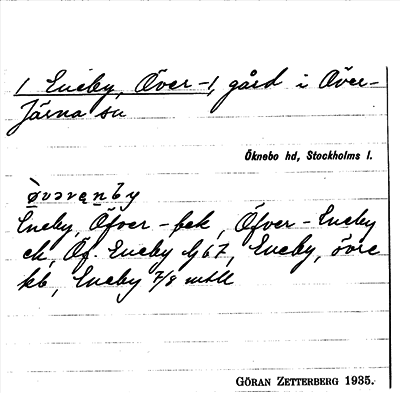 / Eneby, Över-/, gård i Över-
Järna sn
Öknebo hd, Stockholms l.
ö̀vərenby
Eneby, Öfver- fsk, Öfver-Eneby
ek, Öf. Eneby Gj 67, Eneby, övre
kb, Eneby 7/8 mtl
GÖRAN ZETTERBERG 1935.